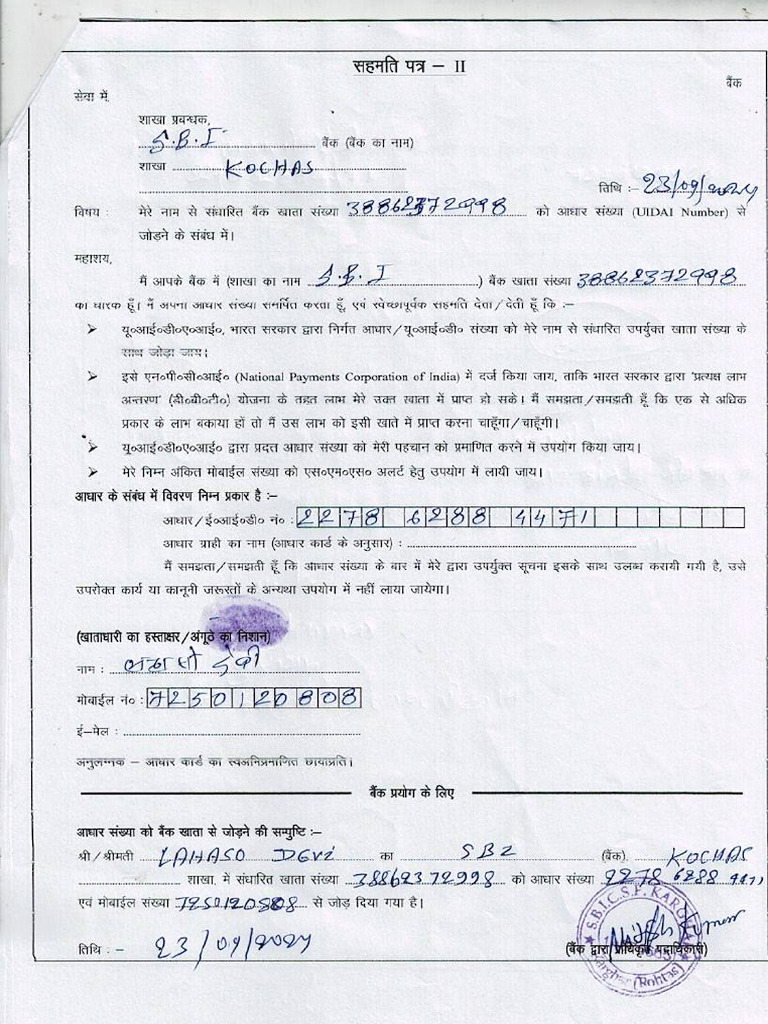 सहमति पत्र – II
बैंक
सेवा में,
शाखा प्रबन्धक,
S.B.I बैंक (बैंक का नाम)
शाखा KOCHAS
तिथि :- 23/09/2024
विषय : मेरे नाम से संधारित बैंक खाता संख्या 38862372998 को आधार संख्या (UIDAI Number) से
जोड़ने के संबंध में।
महाशय,
मैं आपके बैंक में (शाखा का नाम S.B.I ) बैंक खाता संख्या 38862372998
का धारक हूँ। मैं अपना आधार संख्या समर्पित करता हूँ, एवं स्वेच्छापूर्वक सहमति देता/देती हूँ कि :–
➢ यू०आई०डी०ए०आई०, भारत सरकार द्वारा निर्गत आधार/यू०आई०डी० संख्या को मेरे नाम से संधारित उपर्युक्त खाता संख्या के
साथ जोड़ा जाय।
➢ इसे एन०पी०सी०आई० (National Payments Corporation of India) में दर्ज किया जाय, ताकि भारत सरकार द्वारा 'प्रत्यक्ष लाभ
अन्तरण' (डी०बी०टी०) योजना के तहत लाभ मेरे उक्त खाता में प्राप्त हो सके। मैं समझता/समझती हूँ कि एक से अधिक
प्रकार के लाभ बकाया हों तो मैं उस लाभ को इसी खाते में प्राप्त करना चाहूँगा/चाहूँगी।
➢ यू०आई०डी०ए०आई० द्वारा प्रदत्त आधार संख्या को मेरी पहचान को प्रमाणित करने में उपयोग किया जाय।
➢ मेरे निम्न अंकित मोबाईल संख्या को एस०एम०एस० अलर्ट हेतु उपयोग में लायी जाय।
आधार के संबंध में विवरण निम्न प्रकार है :–
आधार/ई०आई०डी० नं० : 2278 6288 4471
आधार ग्राही का नाम (आधार कार्ड के अनुसार) :
मैं समझता/समझती हूँ कि आधार संख्या के बार में मेरे द्वारा उपर्युक्त सूचना इसके साथ उलब्ध करायी गयी है, उसे
उपरोक्त कार्य या कानूनी जरूरतों के अन्यथा उपयोग में नहीं लाया जायेगा।
(खाताधारी का हस्ताक्षर/अंगूठे का निशान)
नाम : देवी
मोबाईल नं० : 7250120808
ई-मेल :
अनुलग्नक – आधार कार्ड का स्वअभिप्रमाणित छायाप्रति।
बैंक प्रयोग के लिए
आधार संख्या को बैंक खाता से जोड़ने की सम्पुष्टि :–
श्री/श्रीमती LAHASO DEVI का SBI (बैंक). KOCHAS
शाखा, में संधारित खाता संख्या 38862372998 को आधार संख्या 2278 6288 4471
एवं मोबाईल संख्या 7250120808 से जोड़ दिया गया है।
तिथि : – 23/09/2024
(बैंक द्वारा प्राधिकृत पदाधिकारी)
(Rohtas)